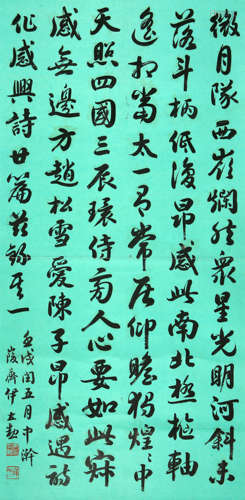 微月隊西嶺爛然眾星光明河斜未
落斗柄低復昂感此南北極樞軸
遙相當太一有常居仰瞻獨煌煌中
天照四國三辰環侍旁人心要如此寂
感無邊方趙松雪愛陳子昂感遇詩
作感興詩廿篇茲錄其一
壬戌閏五月中澣